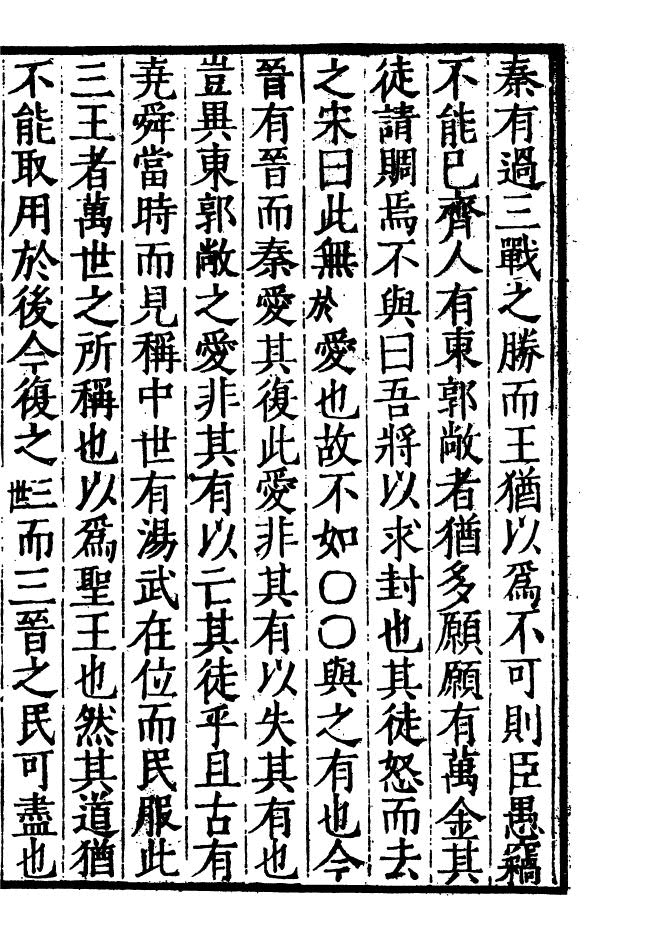 秦有過三戰之勝而王猶以爲不可則臣愚竊
不能已齊人有東郭敞者猶多願願有萬金其
徒請賙焉不與曰吾將以求封也其徒怒而去
之宋曰此無於愛也故不如〇〇與之有也今
晉有晉而秦愛其復此愛非其有以失其有也
豈異東郭敞之愛非其有以亡其徒乎且古有
堯舜當時而見稱中世有湯武在位而民服此
三王者萬世之所稱也以爲聖王也然其道猶
不能取用於後今復之三世而三晉之民可盡也